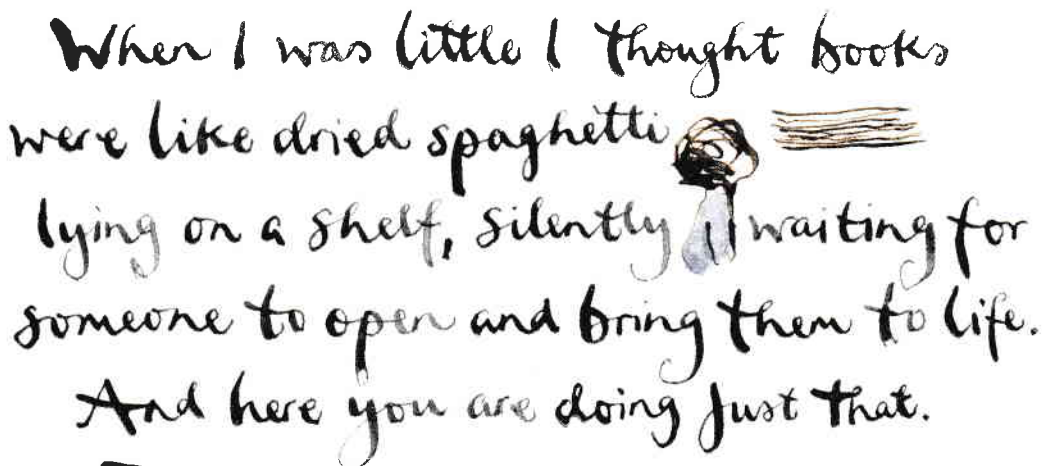 When I was little I thought books
were like dried spaghetti
lying on a shelf, silently waiting for
someone to open and bring them to life.
And here you are doing just that.